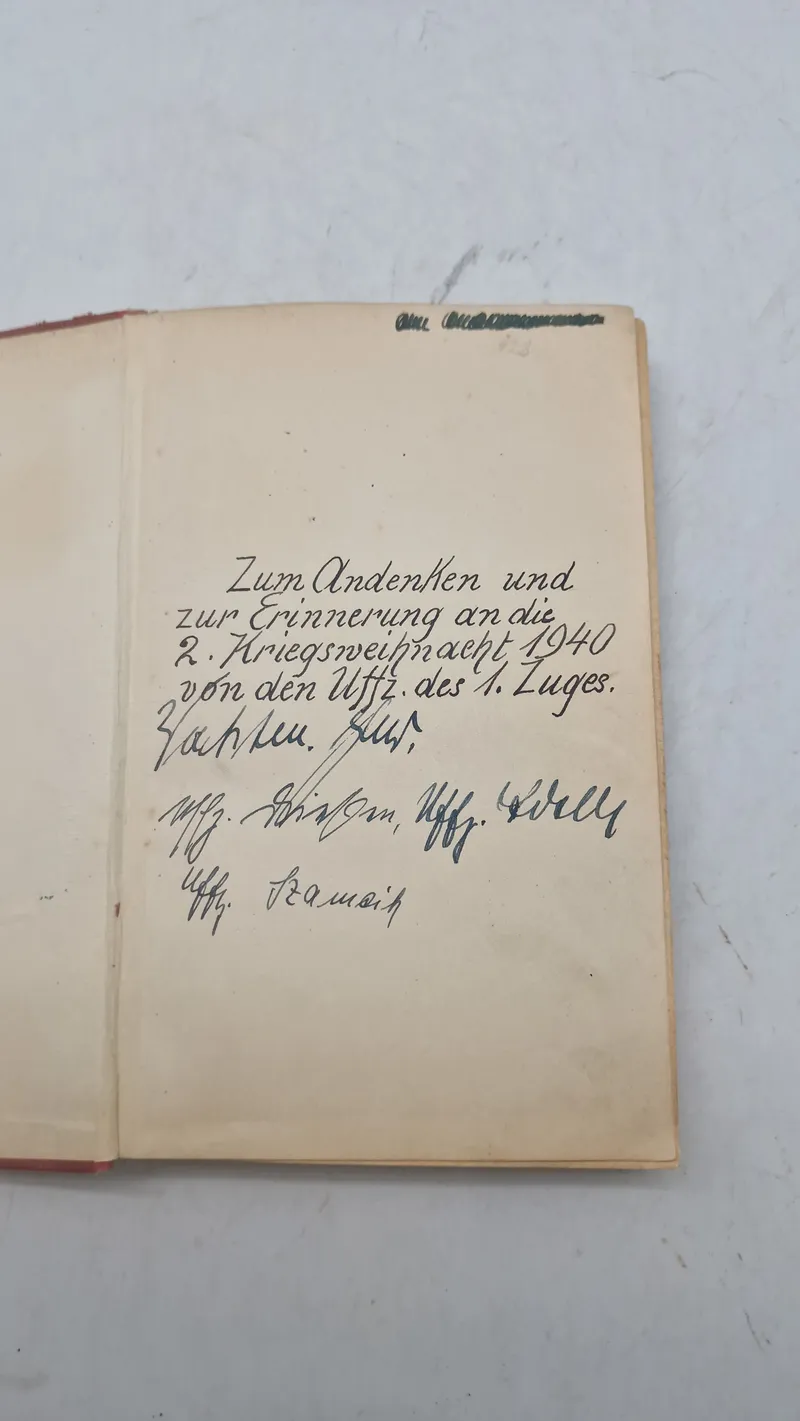 Zum Andenken und
zur Erinnerung an die
2. Kriegsweihnacht 1940
von den Uffz. des 1. Zuges.
Uffz. Uffz.
Uffz. Szameik